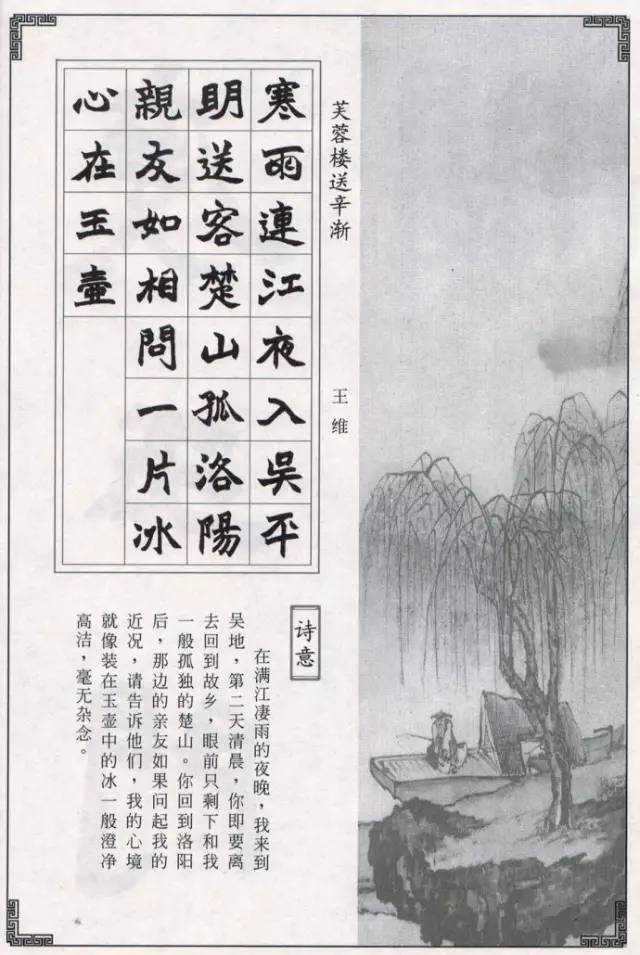 芙蓉楼送辛渐
王维
寒雨連江夜入吳平
明送客楚山孤洛陽
親友如相問一片冰
心在玉壺
诗意
在满江凄雨的夜晚，我来到
吴地，第二天清晨，你即要离
去回到故乡，眼前只剩下和我
一般孤独的楚山。你回到洛阳
后，那边的亲友如果问起我的
近况，请告诉他们，我的心境
就像装在玉壶中的冰一般澄净
高洁，毫无杂念。